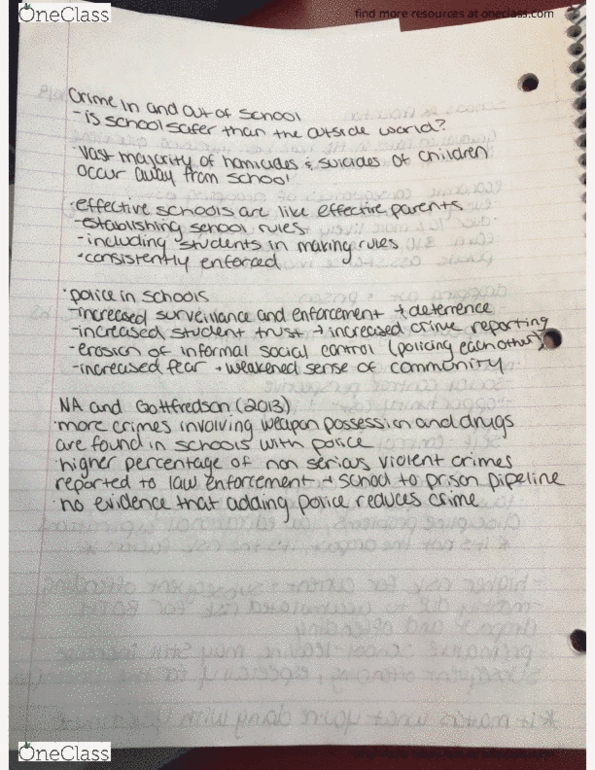 OneClass
find more resources at oneclass.com
Crime in and out of school
- is school safer than the outside world?
· Vast majority of homicides & suicides of children
occur away from school
· effective schools are like effective parents
- establishing school rules
- including students in making rules
- consistently enforced
· police in schools
- increased surveillance and enforcement → deterrence
- increased student trust → increased crime reporting
- erosion of informal social control (policing each other)
- increased fear → weakened sense of community
NA and Gottfredson (2013)
· more crimes involving weapon possession and drugs
are found in schools with police
· higher percentage of non serious violent crimes
reported to law enforcement → school to prison pipeline
· no evidence that adding police reduces crime
OneClass